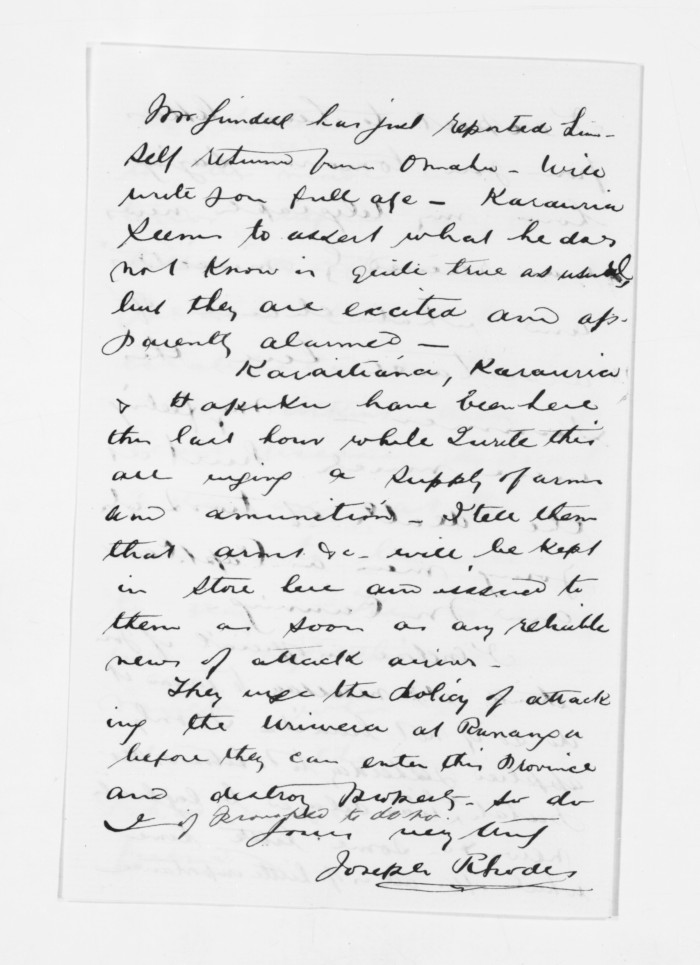 Mr Grindell has just reported him-
self returned from Omahu - Will
write you full afe - Karauria
seems to assert what he does
not know is quite true as usual,
but they are excited and ap-
parently alarmed -
Karaitiana, Karauria
& Hapuku have been here
this last hour while I write this
all urging a supply of arms
and amunition - I tell them
that arms &c - will be kept
in store here and issued to
them as soon as any reliable
news of attack arrives -
They urge the policy of attack
ing the Uriwera at Runanga
before they can enter this Province
and destroy property - so do
I if provoked to do so.
Yours very truly
Joseph Rhodes